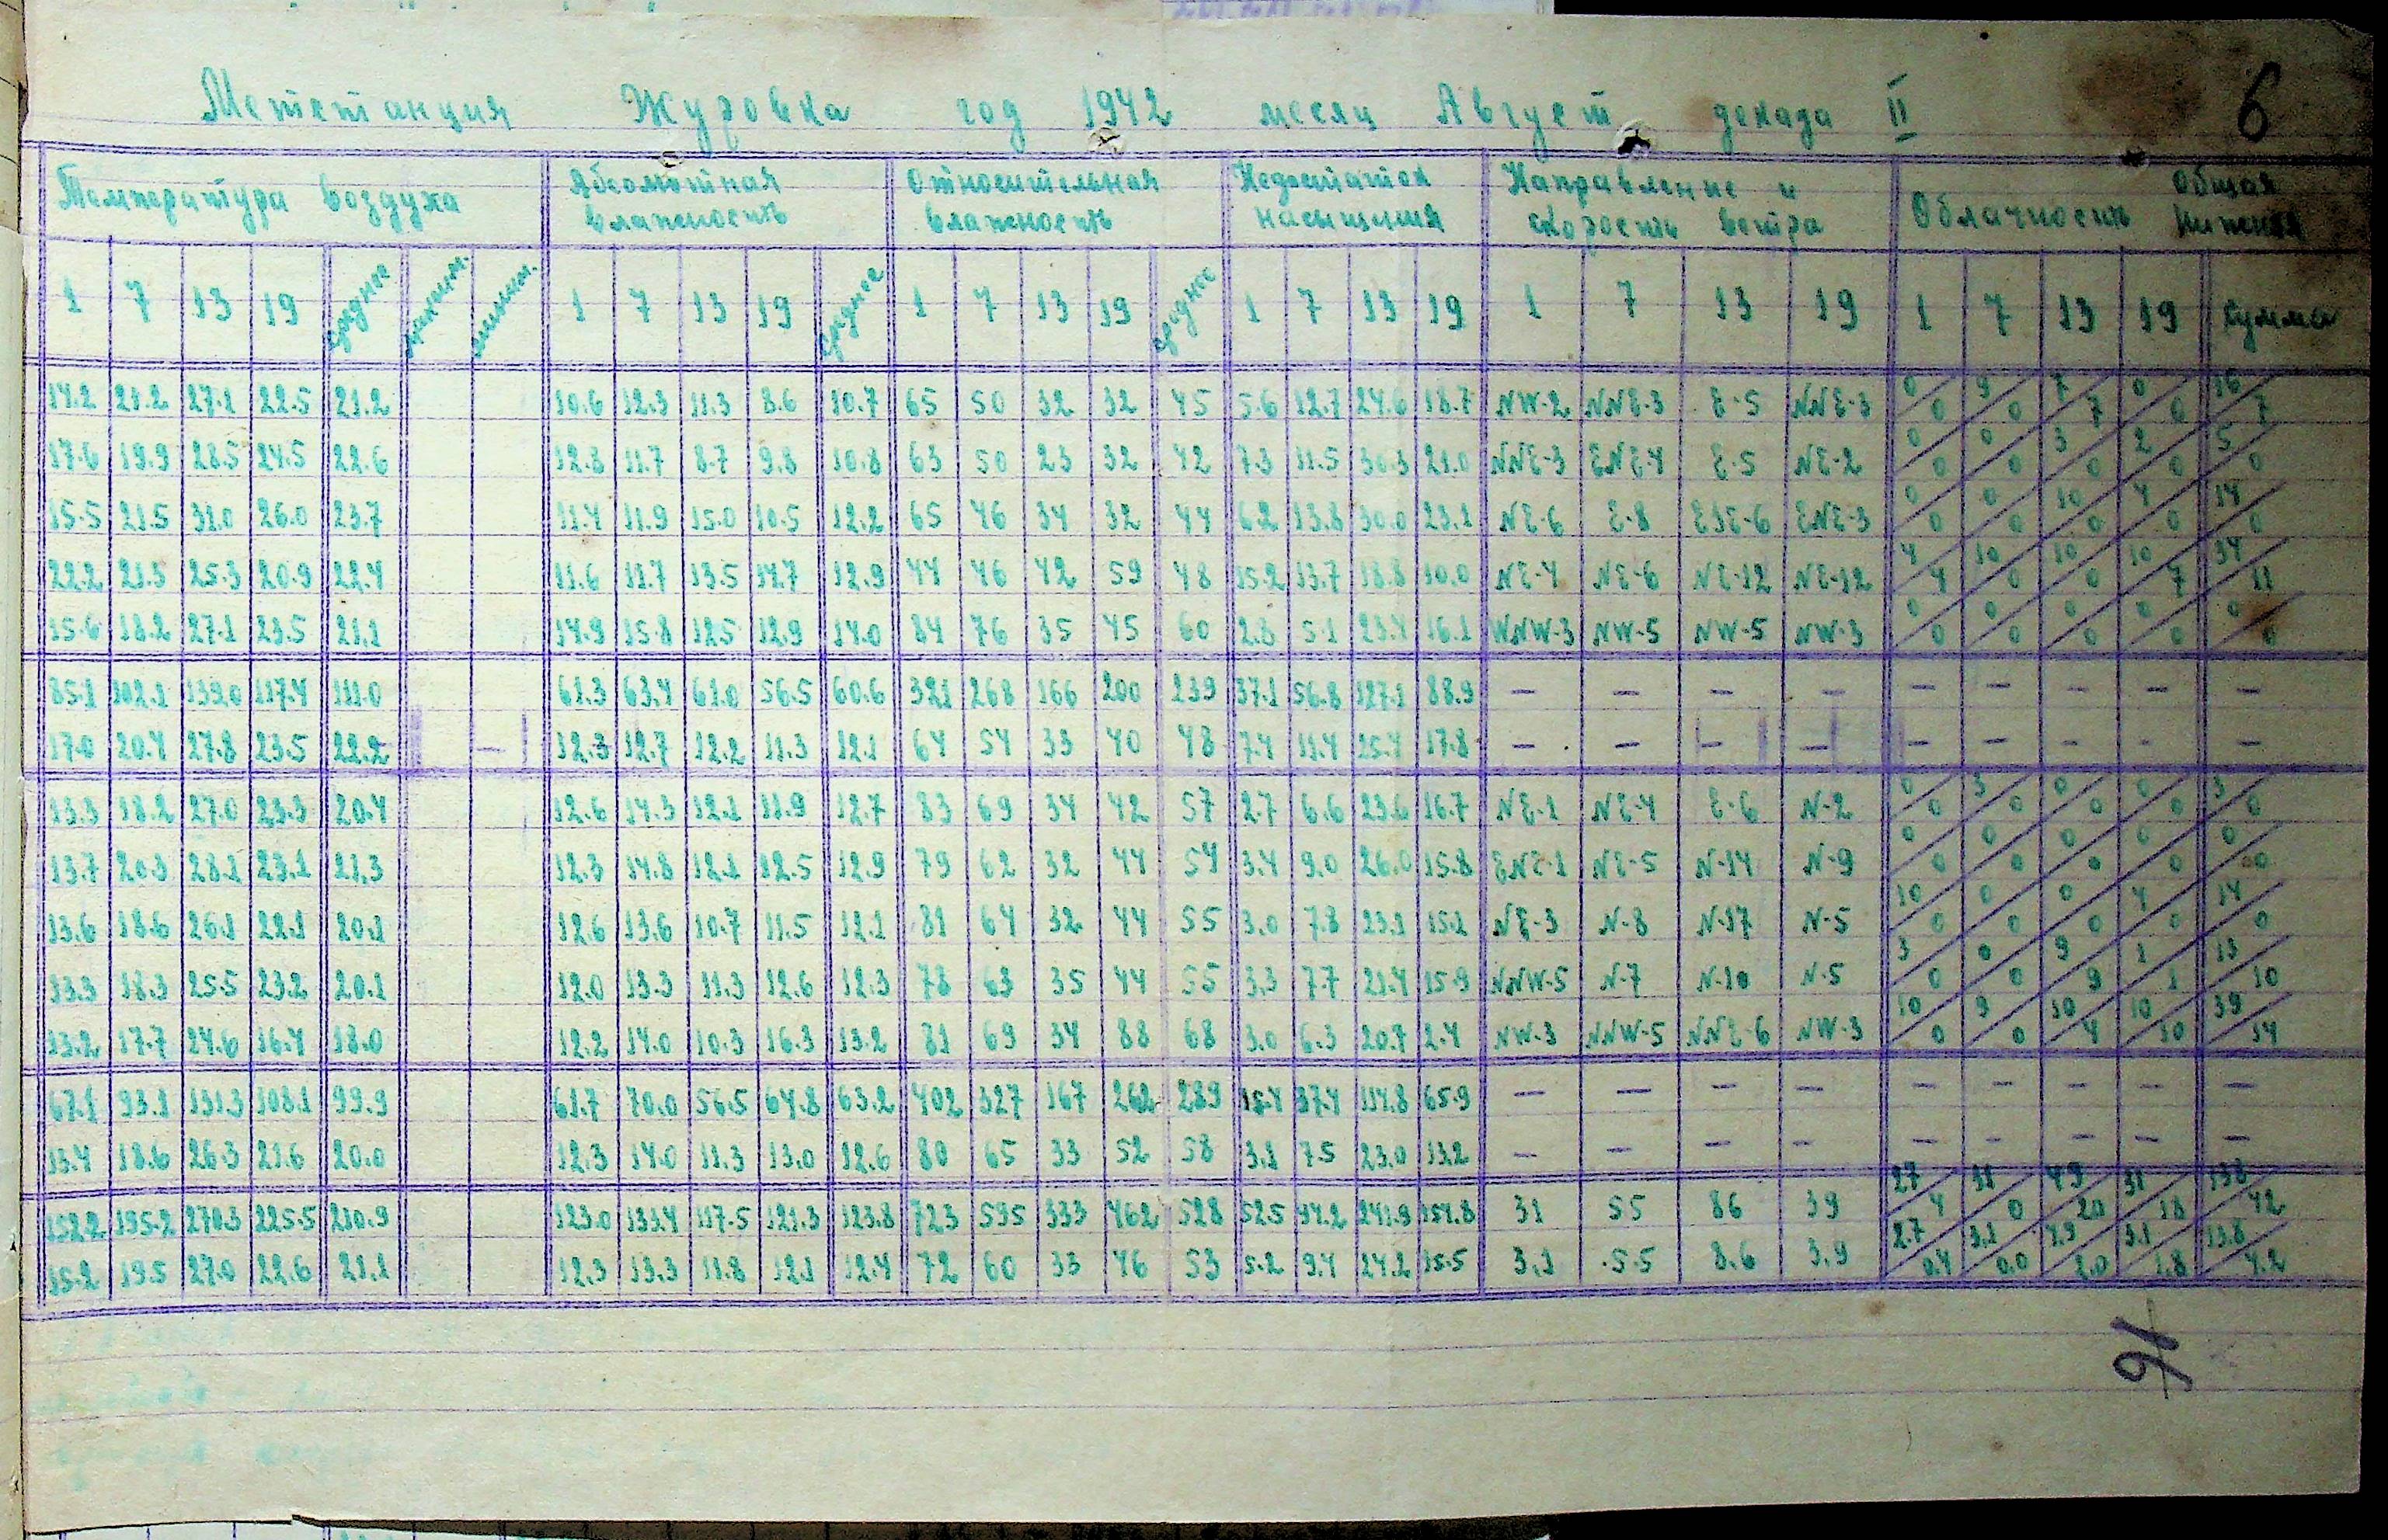 Метстанция Журовка год 1942 месяц Август декада II 6
Температура воздуха Абсолютная влажность Относительная влажность Недостаток насыщения Направление и скорость ветра Облачность Общая Нижняя
1 7 13 19 среднее максим. миним. 1 7 13 19 среднее 1 7 13 19 среднее 1 7 13 19 1 7 13 19 1 7 13 19 сумма
14.2 21.2 27.1 22.5 21.2 10.6 12.3 11.3 8.6 10.7 65 50 32 32 45 5.6 12.7 24.6 18.7 NW-2 NNE-3 E-5 NNE-3 0/0 9/0 7/7 0/0 16/7
17.6 19.9 28.5 24.5 22.6 12.8 11.7 8.7 9.8 10.8 63 50 23 32 42 7.3 11.5 30.3 21.0 NNE-3 ENE-4 E-5 NE-2 0/0 0/0 3/0 2/0 5/0
15.5 21.5 31.0 26.0 23.7 11.4 11.9 15.0 10.5 12.2 65 46 34 32 44 6.2 13.8 30.0 23.1 NE-6 E-8 ESE-6 ENE-3 0/0 0/0 10/0 4/0 14/0
22.2 21.3 25.3 20.9 22.4 11.6 11.7 13.5 14.7 12.9 44 46 42 59 48 15.2 13.7 18.8 10.0 NE-4 NE-6 NE-12 NE-12 4/4 10/0 10/0 10/7 34/11
15.6 18.2 27.1 23.5 21.1 14.9 15.8 12.5 12.9 14.0 84 76 35 45 60 2.8 5.1 23.4 16.1 WNW-3 NW-5 NW-5 NW-3 0/0 0/0 0/0 0/0 0/0
85.1 102.1 139.0 117.4 111.0 61.3 63.4 61.0 56.5 60.6 321 268 166 200 239 37.1 56.8 127.1 88.9 — — — — — — — — —
17.0 20.4 27.8 23.5 22.2 — 12.3 12.7 12.2 11.3 12.1 64 54 33 40 48 7.4 11.4 25.4 17.8 — — — — — — — — —
13.3 18.2 27.0 23.3 20.4 12.6 14.3 12.1 11.9 12.7 83 69 34 42 57 2.7 6.6 23.6 16.7 NE-1 NE-4 E-6 N-2 0/0 3/0 0/0 0/0 3/0
13.7 20.3 28.1 23.1 21.3 12.3 14.8 12.1 12.5 12.9 79 62 32 44 54 3.4 9.0 26.0 15.8 ENE-1 NE-5 N-14 N-9 0/0 0/0 0/0 0/0 0/0
13.6 18.6 26.1 22.1 20.1 12.6 13.6 10.7 11.5 12.1 81 64 32 44 55 3.0 7.8 23.1 15.1 NE-3 N-8 N-17 N-5 10/0 0/0 0/0 4/0 14/0
13.3 18.3 25.5 23.2 20.1 12.0 13.3 11.3 12.6 12.3 78 63 35 44 55 3.3 7.7 21.4 15.9 NNW-5 N-7 N-10 N-5 3/0 0/0 9/9 1/1 13/10
13.2 17.7 24.6 16.4 18.0 12.2 14.0 10.3 16.3 13.2 81 69 34 88 68 3.0 6.3 20.7 2.4 NW-3 NNW-5 NNE-6 NW-3 10/0 9/0 10/4 10/10 39/14
67.1 93.1 131.3 108.1 99.9 61.7 70.0 56.5 64.8 63.2 402 327 167 262 289 15.4 37.4 114.8 65.9 — — — — — — — — —
13.4 18.6 26.3 21.6 20.0 12.3 14.0 11.3 13.0 12.6 80 65 33 52 58 3.1 7.5 23.0 13.2 — — — — — — — — —
152.2 195.2 270.3 225.5 210.9 123.0 133.4 117.5 121.3 123.8 723 595 333 462 528 52.5 94.2 241.9 154.8 31 55 86 39 27/4 31/0 49/20 31/18 138/42
15.2 19.5 27.0 22.6 21.1 12.3 13.3 11.8 12.1 12.4 72 60 33 46 53 5.2 9.4 24.2 15.5 3.1 5.5 8.6 3.9 2.7/0.4 3.1/0.0 4.9/2.0 3.1/1.8 13.8/4.2